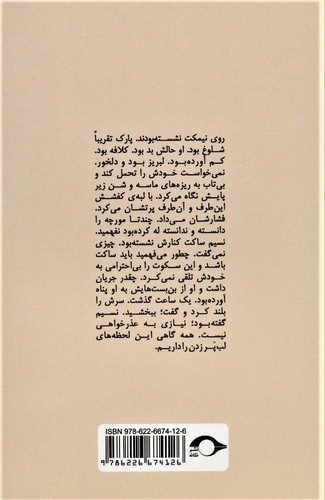 روی نیمکت نشسته‌بودند. پارک تقریباً
شلوغ بود. او حالش بد بود. کلافه بود.
کم آورده‌بود. لبریز بود و دلخور.
نمی‌خواست خودش را تحمل کند و
بی‌تاب به ریزه‌های ماسه و شن زیر
پایش نگاه می‌کرد. با لبه‌ی کفشش
این‌طرف و آن‌طرف پرتشان می‌کرد.
فشارشان می‌داد. چندتا مورچه را
دانسته و ندانسته له کرده‌بود نفهمید.
نسیم ساکت کنارش نشسته‌بود. چیزی
نمی‌گفت. چطور می‌فهمید باید ساکت
باشد و این سکوت را بی‌احترامی به
خودش تلقی نمی‌کرد. چقدر جریان
داشت و او از بن‌بست‌هایش به او پناه
آورده‌بود. یک ساعت گذشت. سرش را
بلند کرد و گفت؛ ببخشید. نسیم
گفته‌بود؛ نیازی به عذرخواهی
نیست. همه گاهی این لحظه‌های
لب‌پَر زدن را داریم.
ISBN 978-622-6674-12-6
9 786226 674126